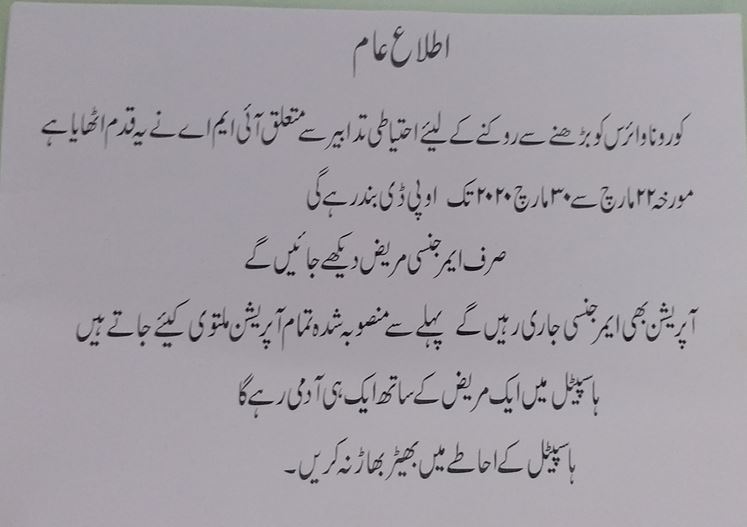 اطلاع عام
کورونا وائرس کو بڑھنے سے روکنے کے لیئے احتیاطی تدابیر سے متعلق آئی ایم اے نے یہ قدم اٹھایا ہے
مورخہ ۲۲ مارچ سے ۳۰ مارچ ۲۰۲۰ تک او پی ڈی بند رہے گی
صرف ایمرجنسی مریض دیکھے جائیں گے
آپریشن بھی ایمرجنسی جاری رہیں گے پہلے سے منصوبہ شدہ تمام آپریشن ملتوی کیئے جاتے ہیں
ہاسپیٹل میں ایک مریض کے ساتھ ایک ہی آدمی رہے گا
ہاسپیٹل کے احاطے میں بھیڑ بھاڑ نہ کریں۔